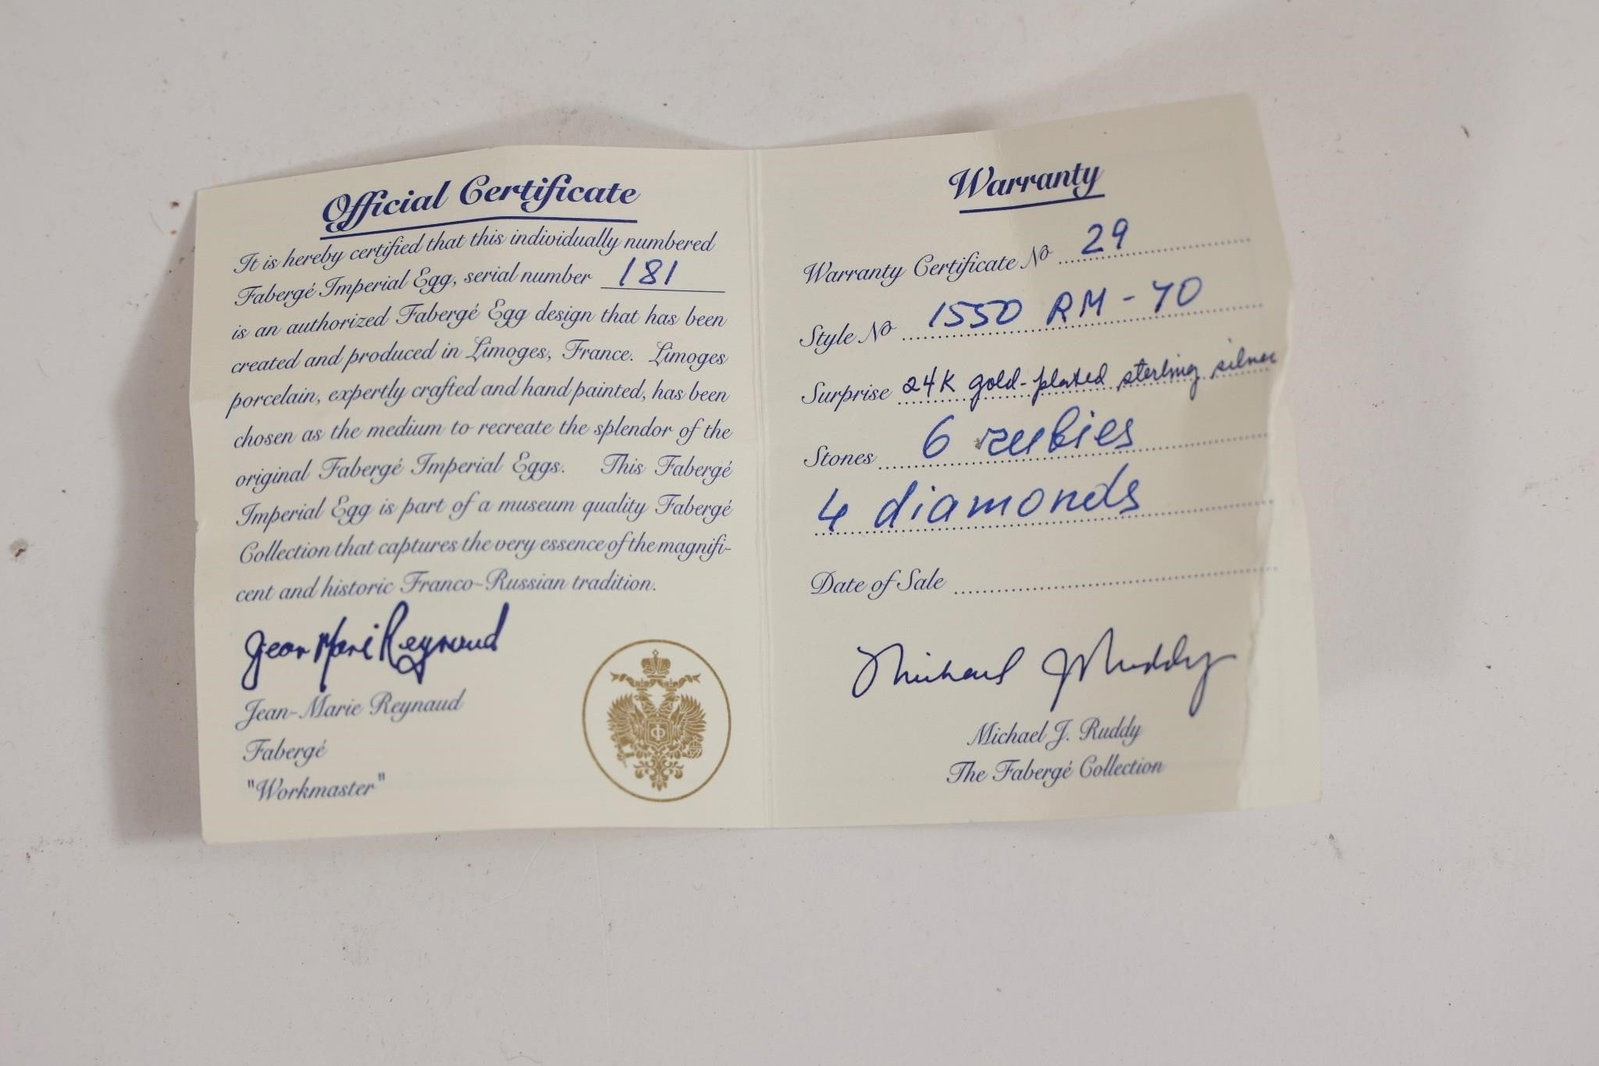 Official Certificate
It is hereby certified that this individually numbered
Fabergé Imperial Egg, serial number 181
is an authorized Fabergé Egg design that has been
created and produced in Limoges, France. Limoges
porcelain, expertly crafted and hand painted, has been
chosen as the medium to recreate the splendor of the
original Fabergé Imperial Eggs. This Fabergé
Imperial Egg is part of a museum quality Fabergé
Collection that captures the very essence of the magnifi-
cent and historic Franco-Russian tradition.
Jean Marie Reynaud
Jean-Marie Reynaud
Fabergé
"Workmaster"
Warranty
Warranty Certificate Nº 29
Style Nº 1550 RM-70
Surprise 24K gold-plated sterling silver
Stones 6 rubies
4 diamonds
Date of Sale
Michael J Ruddy
Michael J. Ruddy
The Fabergé Collection